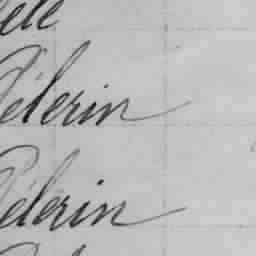 Pélerin
Pélerin